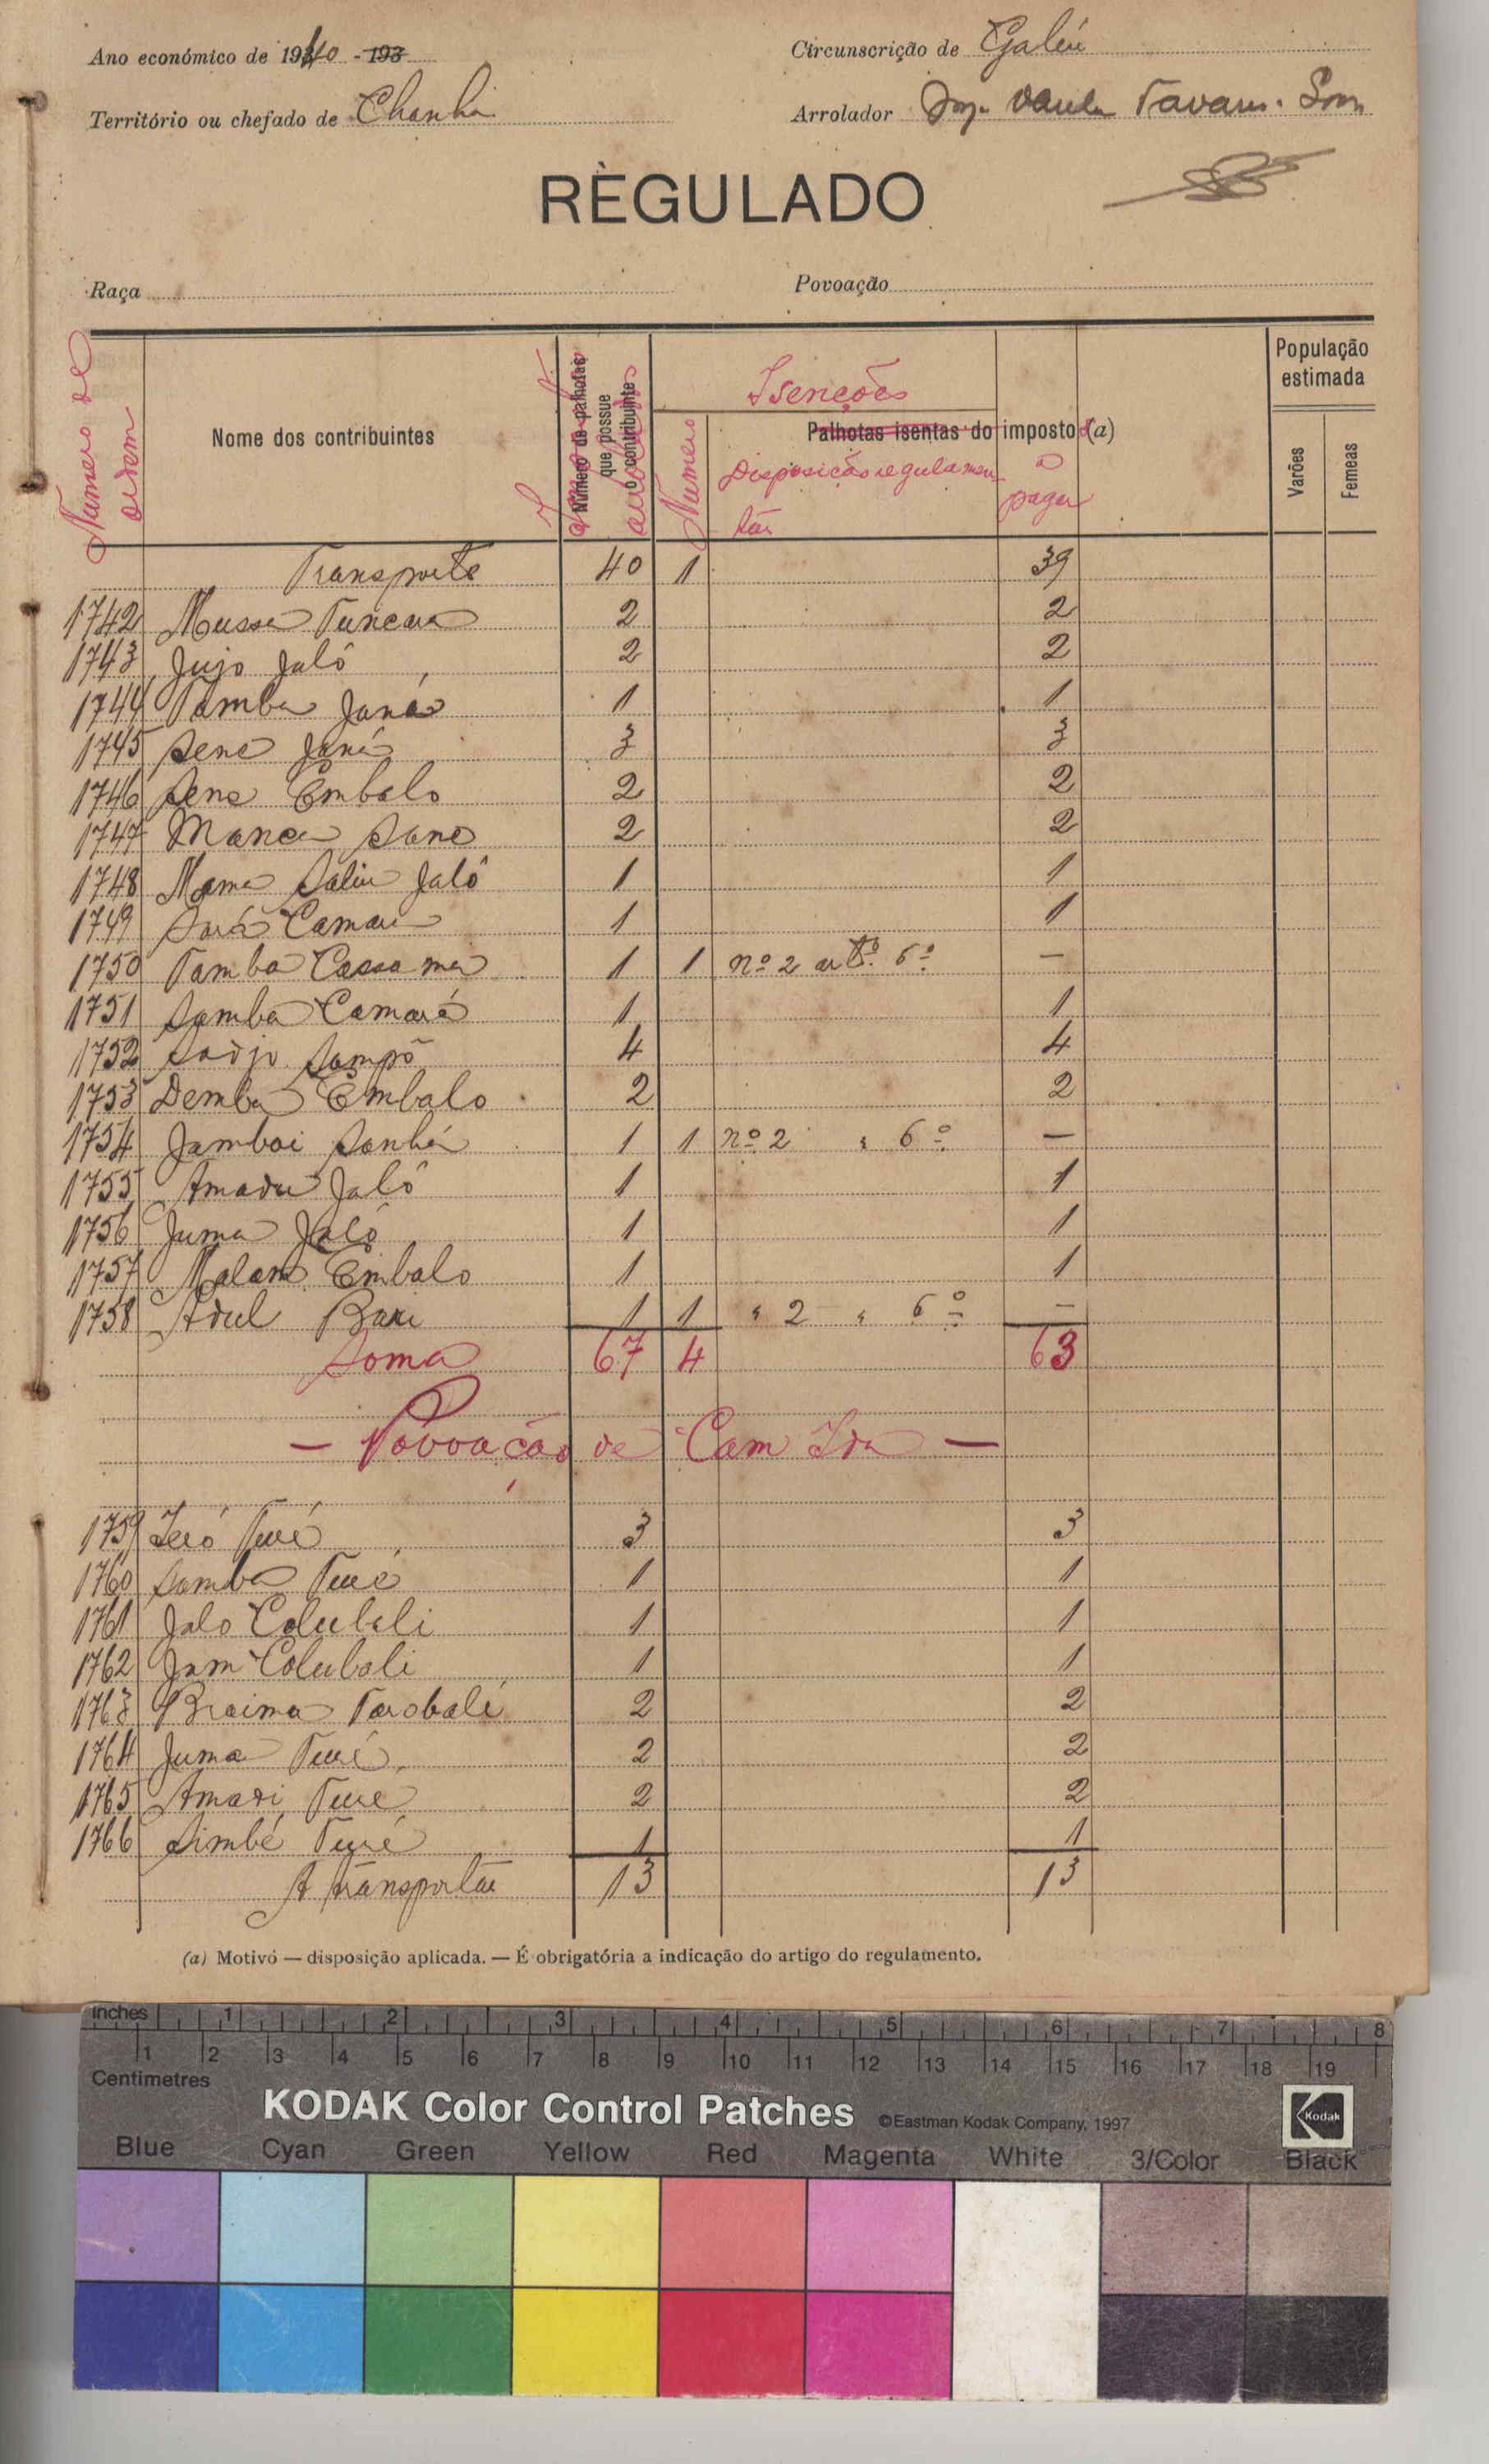 Ano económico de 1940 - 193
Circunscrição de Gabú
Território ou chefado de Chanha
Arrolador Tavares
REGULADO
Raça
Povoação
Numero de ordem
Nome dos contribuintes
Número de palhotas que possue o contribuinte
Isenções
Palhotas isentas do imposto (a)
Numero
Disposição regulamentar
a pagar
População estimada
Varões
Femeas
Transporte 40 1 39
1742 Mussa Tuncara 2 2
1743 Jujo Jaló 2 2
1744 Tamba Jana 1 1
1745 Sene Jané 3 3
1746 Sene Embalo 2 2
1747 Manca Sane 2 2
1748 Mama Saliu Jaló 1 1
1749 Sará Camara 1 1
1750 Tamba Cassama 1 1 nº 2 artº 6º —
1751 Samba Camará 1 1
1752 Sadjo Sampo 4 4
1753 Demba Embalo 2 2
1754 Jamboi Sanhá 1 1 nº 2 " 6º —
1755 Amadu Jaló 1 1
1756 Juma Jaló 1 1
1757 Malam Embalo 1 1
1758 Adul Bari 1 1 " 2 " 6º —
Soma 67 4 63
— Povoação de Cam Ida —
1759 Jeró Turé 3 3
1760 Samba Turé 1 1
1761 Jalo Colubali 1 1
1762 Jam Colubali 1 1
1763 Braima Tarobalé 2 2
1764 Juma Turé 2 2
1765 Amadi Ture 2 2
1766 Simbé Turé 1 1
A transportar 13 13
(a) Motivo — disposição aplicada. — É obrigatória a indicação do artigo do regulamento.
inches 1 2 3 4 5 6 7 8
1 2 3 4 5 6 7 8 9 10 11 12 13 14 15 16 17 18 19
Centimetres
KODAK Color Control Patches ©Eastman Kodak Company, 1997 Kodak
Blue Cyan Green Yellow Red Magenta White 3/Color Black